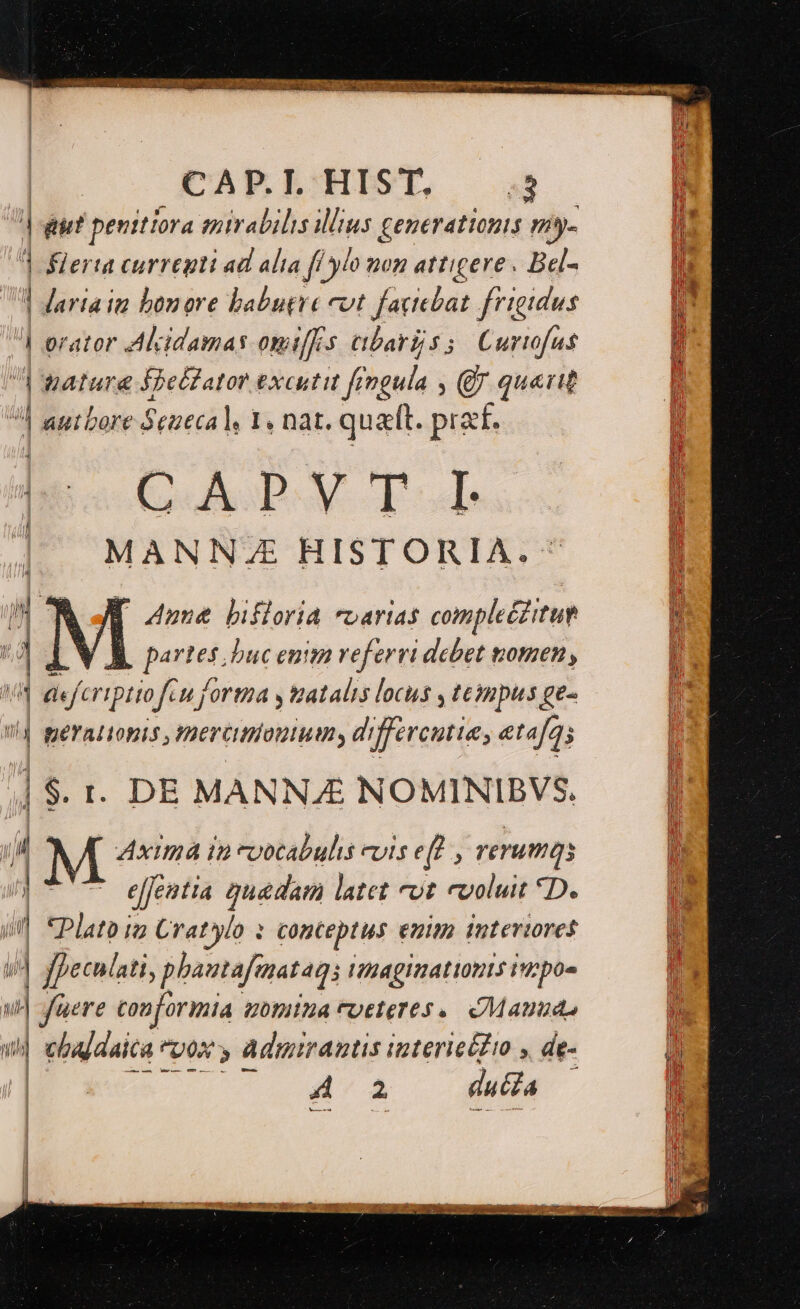 CAP. I. HIST. 3
aut penitiora mirabilis illius generationis my-
ſteria currenti ad alia ſtylo non attigere. Bel-
laria in honore habuere vt faciebat frigidus
orator Alcidamas omiſſis cibarijs; Curioſus
naturæ ſpectator excutit ſingula, & quærit
authore Seneca l. 1. nat. quæſt. præf.
CAPVT I.
MANNÆ HISTORIA.
MAnnæ hiſtoria varias complectitur
partes, huc enim referri debet nomen,
deſcriptio ſeu forma, natalis locus, tempus ge-
nerationis, mercimonium, differentiæ, ætaſq;
§. 1. DE MANNÆ NOMINIBVS.
MAxima in vocabulis vis eſt, rerumq;
eſſentia quædam latet vt voluit D.
Plato in Cratylo: conceptus enim interiores
ſpeculati, phantaſmataq; imaginationis impo-
ſuere conformia nomina veteres. Manna
chaldaica vox, admirantis interiectio, de-
A 2 ducta